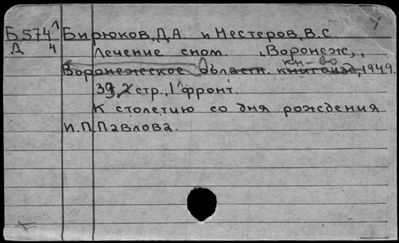 Б574 Бирюков, Д.А. и Нестеров, В.С.
Д 4 Лечение сном. Воронеж,
кн-во
Воронежское Област. книгоизд, 1949.
39,2 стр., 1 фронт.
К столетию со дня рождения
И.П.Павлова.